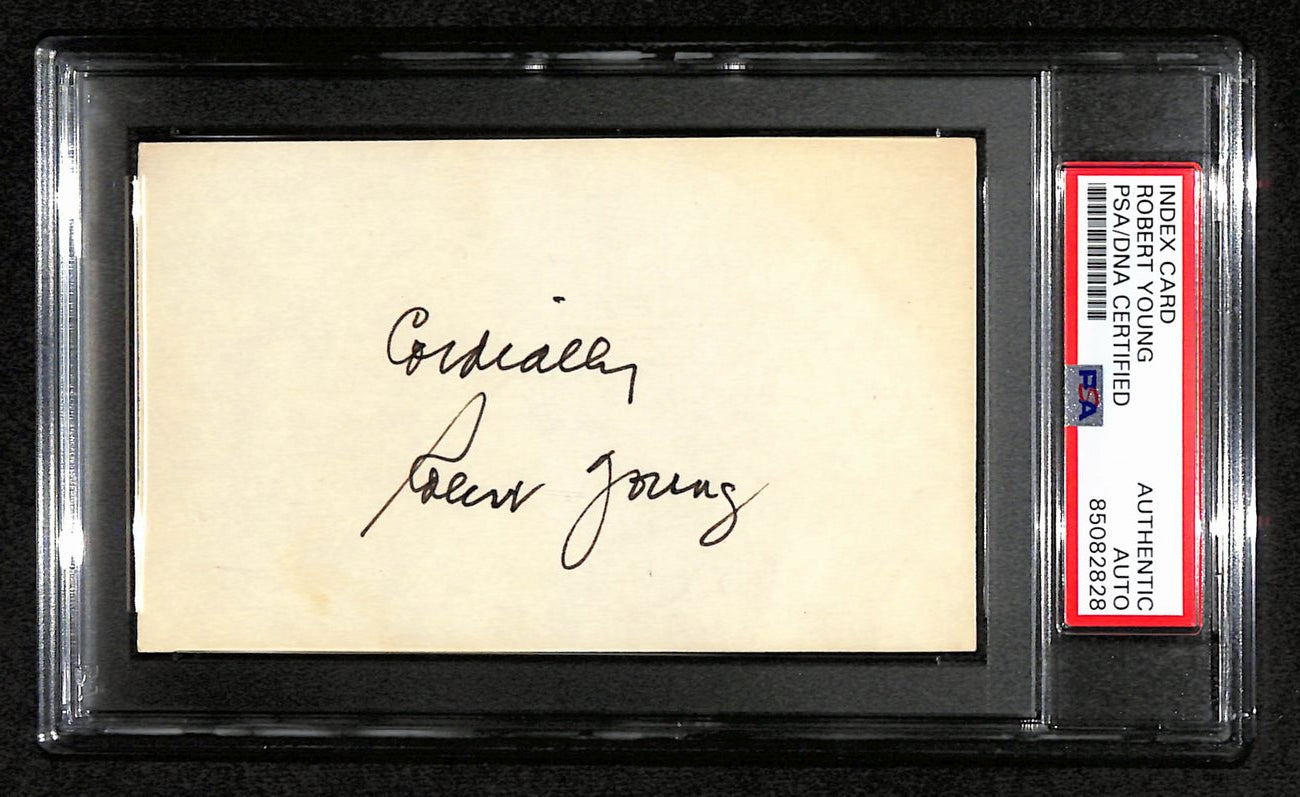 Cordially
Robert Young
INDEX CARD
ROBERT YOUNG
PSA/DNA CERTIFIED
AUTHENTIC
AUTO
85082828
PSA